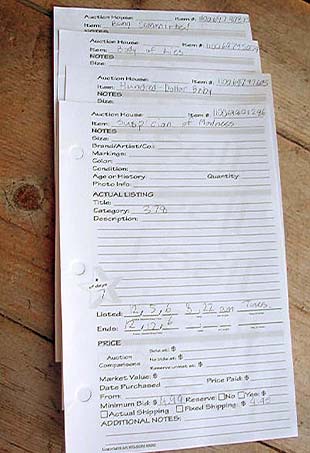 Auction House: Item #
Item:
NOTES
Auction House: Item #
Item: Body of Lies
NOTES
Size:
Auction House: Item #
Item: Hundred-Dollar Baby
NOTES
Size:
Auction House: Item #
Item: Suspician of Madness
NOTES
Size:
Brand/Artist/Co.:
Markings:
Color:
Condition:
Age or History: Quantity
Photo Info:
ACTUAL LISTING
Title:
Category: 378
Description:
# days
7
Listed: 12, 5, 6 3, 22 am Tues.
Ends: 12, 12, 6
PRICE
Auction Comparisons
Sold at: $
No Sale at: $
Reserve unmet at: $
Market Value: $
Date Purchased Price Paid: $
From:
Minimum Bid: $ 4.99 Reserve No Yes: $
Actual Shipping Fixed Shipping: $
ADDITIONAL NOTES: